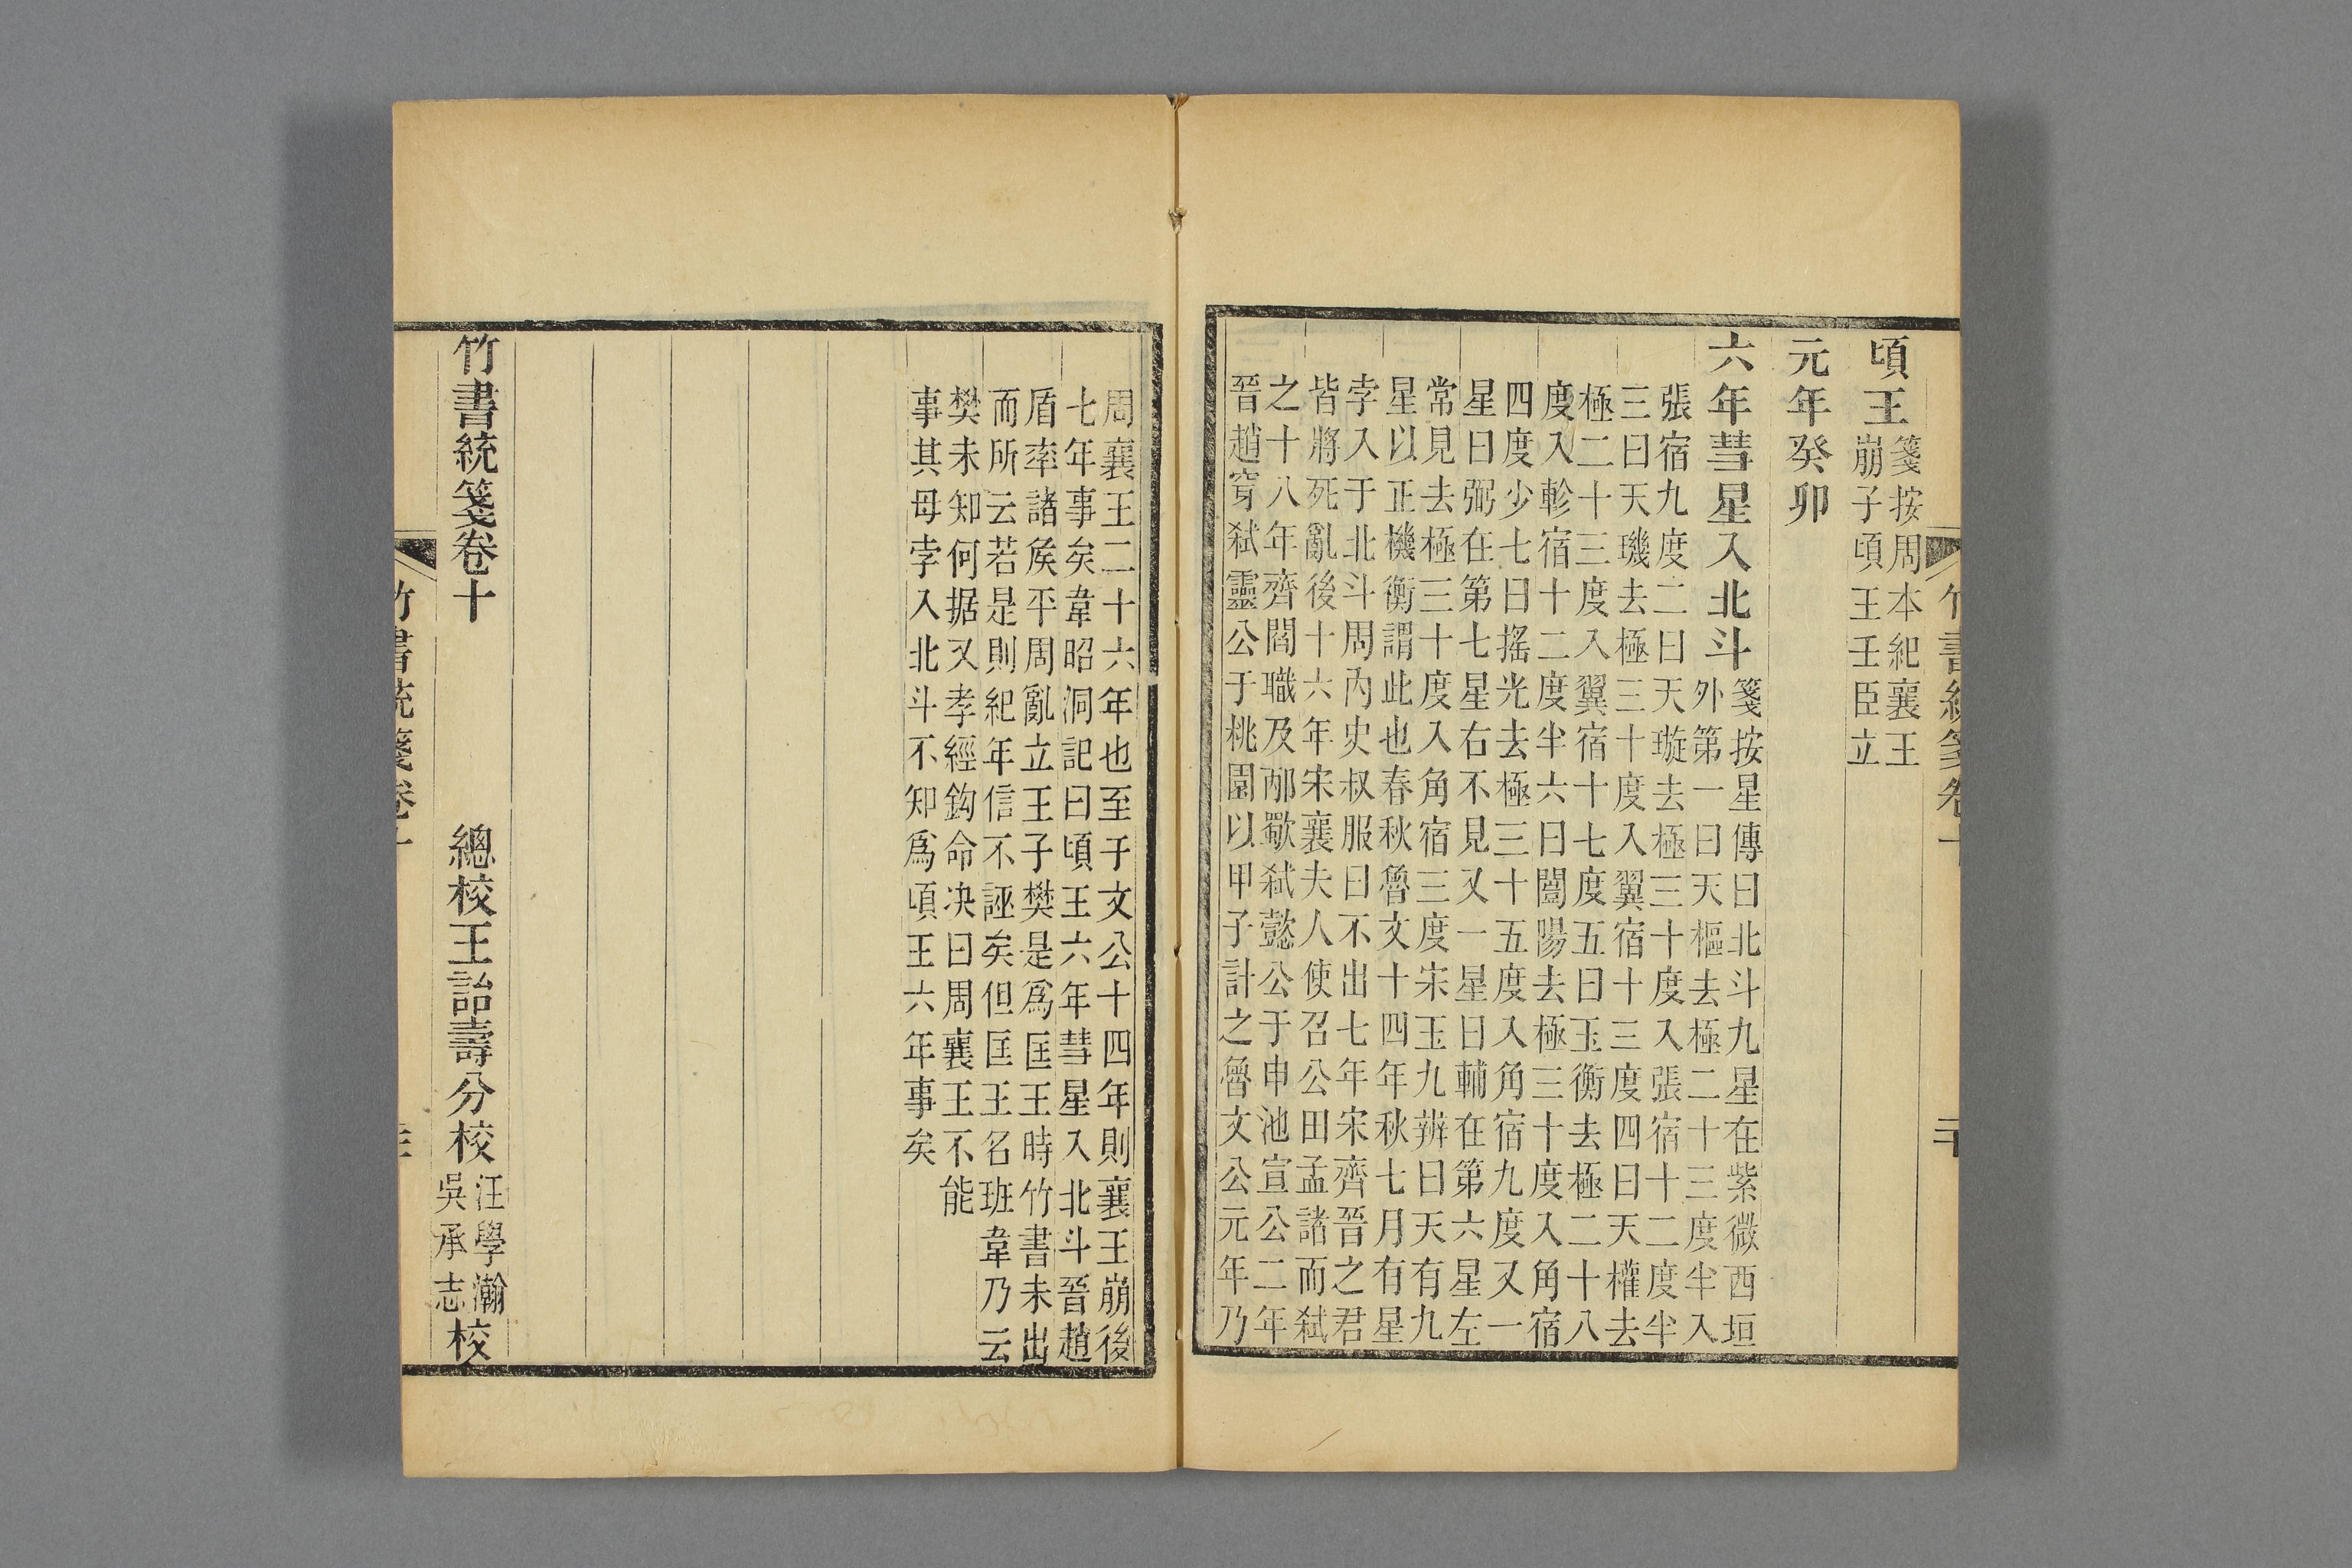 竹書統箋卷十
頃王箋按周本紀襄王
崩子頃王壬臣立
元年癸卯
六年彗星入北斗箋按星傳曰北斗九星在紫微西垣
外第一曰天樞去極二十三度半入
張宿九度二曰天璇去極三十度入張宿十二度半
三曰天璣去極三十度入翼宿十三度四曰天權去
極二十三度入翼宿十七度五曰玉衡去極二十八
度入軫宿十二度半六曰闓陽去極三十度入角宿
四度少七曰搖光去極三十五度入角宿九度又一
星曰弼在第七星右不見又一星曰輔在第六星左
常見去極三十度入角宿三度宋玉九辨曰天有九
星以正機衡謂此也春秋魯文十四年秋七月有星
孛入于北斗周內史叔服曰不出七年宋齊晉之君
皆將死亂後十六年宋襄夫人使召公田孟諸而弒
之十八年齊閻職及邴歜弒懿公于申池宣公二年
晉趙穿弒靈公于桃園以甲子計之魯文公元年乃
周襄王二十六年也至于文公十四年則襄王崩後
七年事矣韋昭洞記曰頃王六年彗星入北斗晉趙
盾率諸矦平周亂立王子樊是爲匡王時竹書未出
而所云若是則紀年信不誣矣但匡王名班韋乃云
樊未知何据又孝經鈎命决曰周襄王不能
事其母孛入北斗不知爲頃王六年事矣
竹書統箋卷十
總校王詒壽分校汪學瀚
吳承志校
竹書統箋卷十